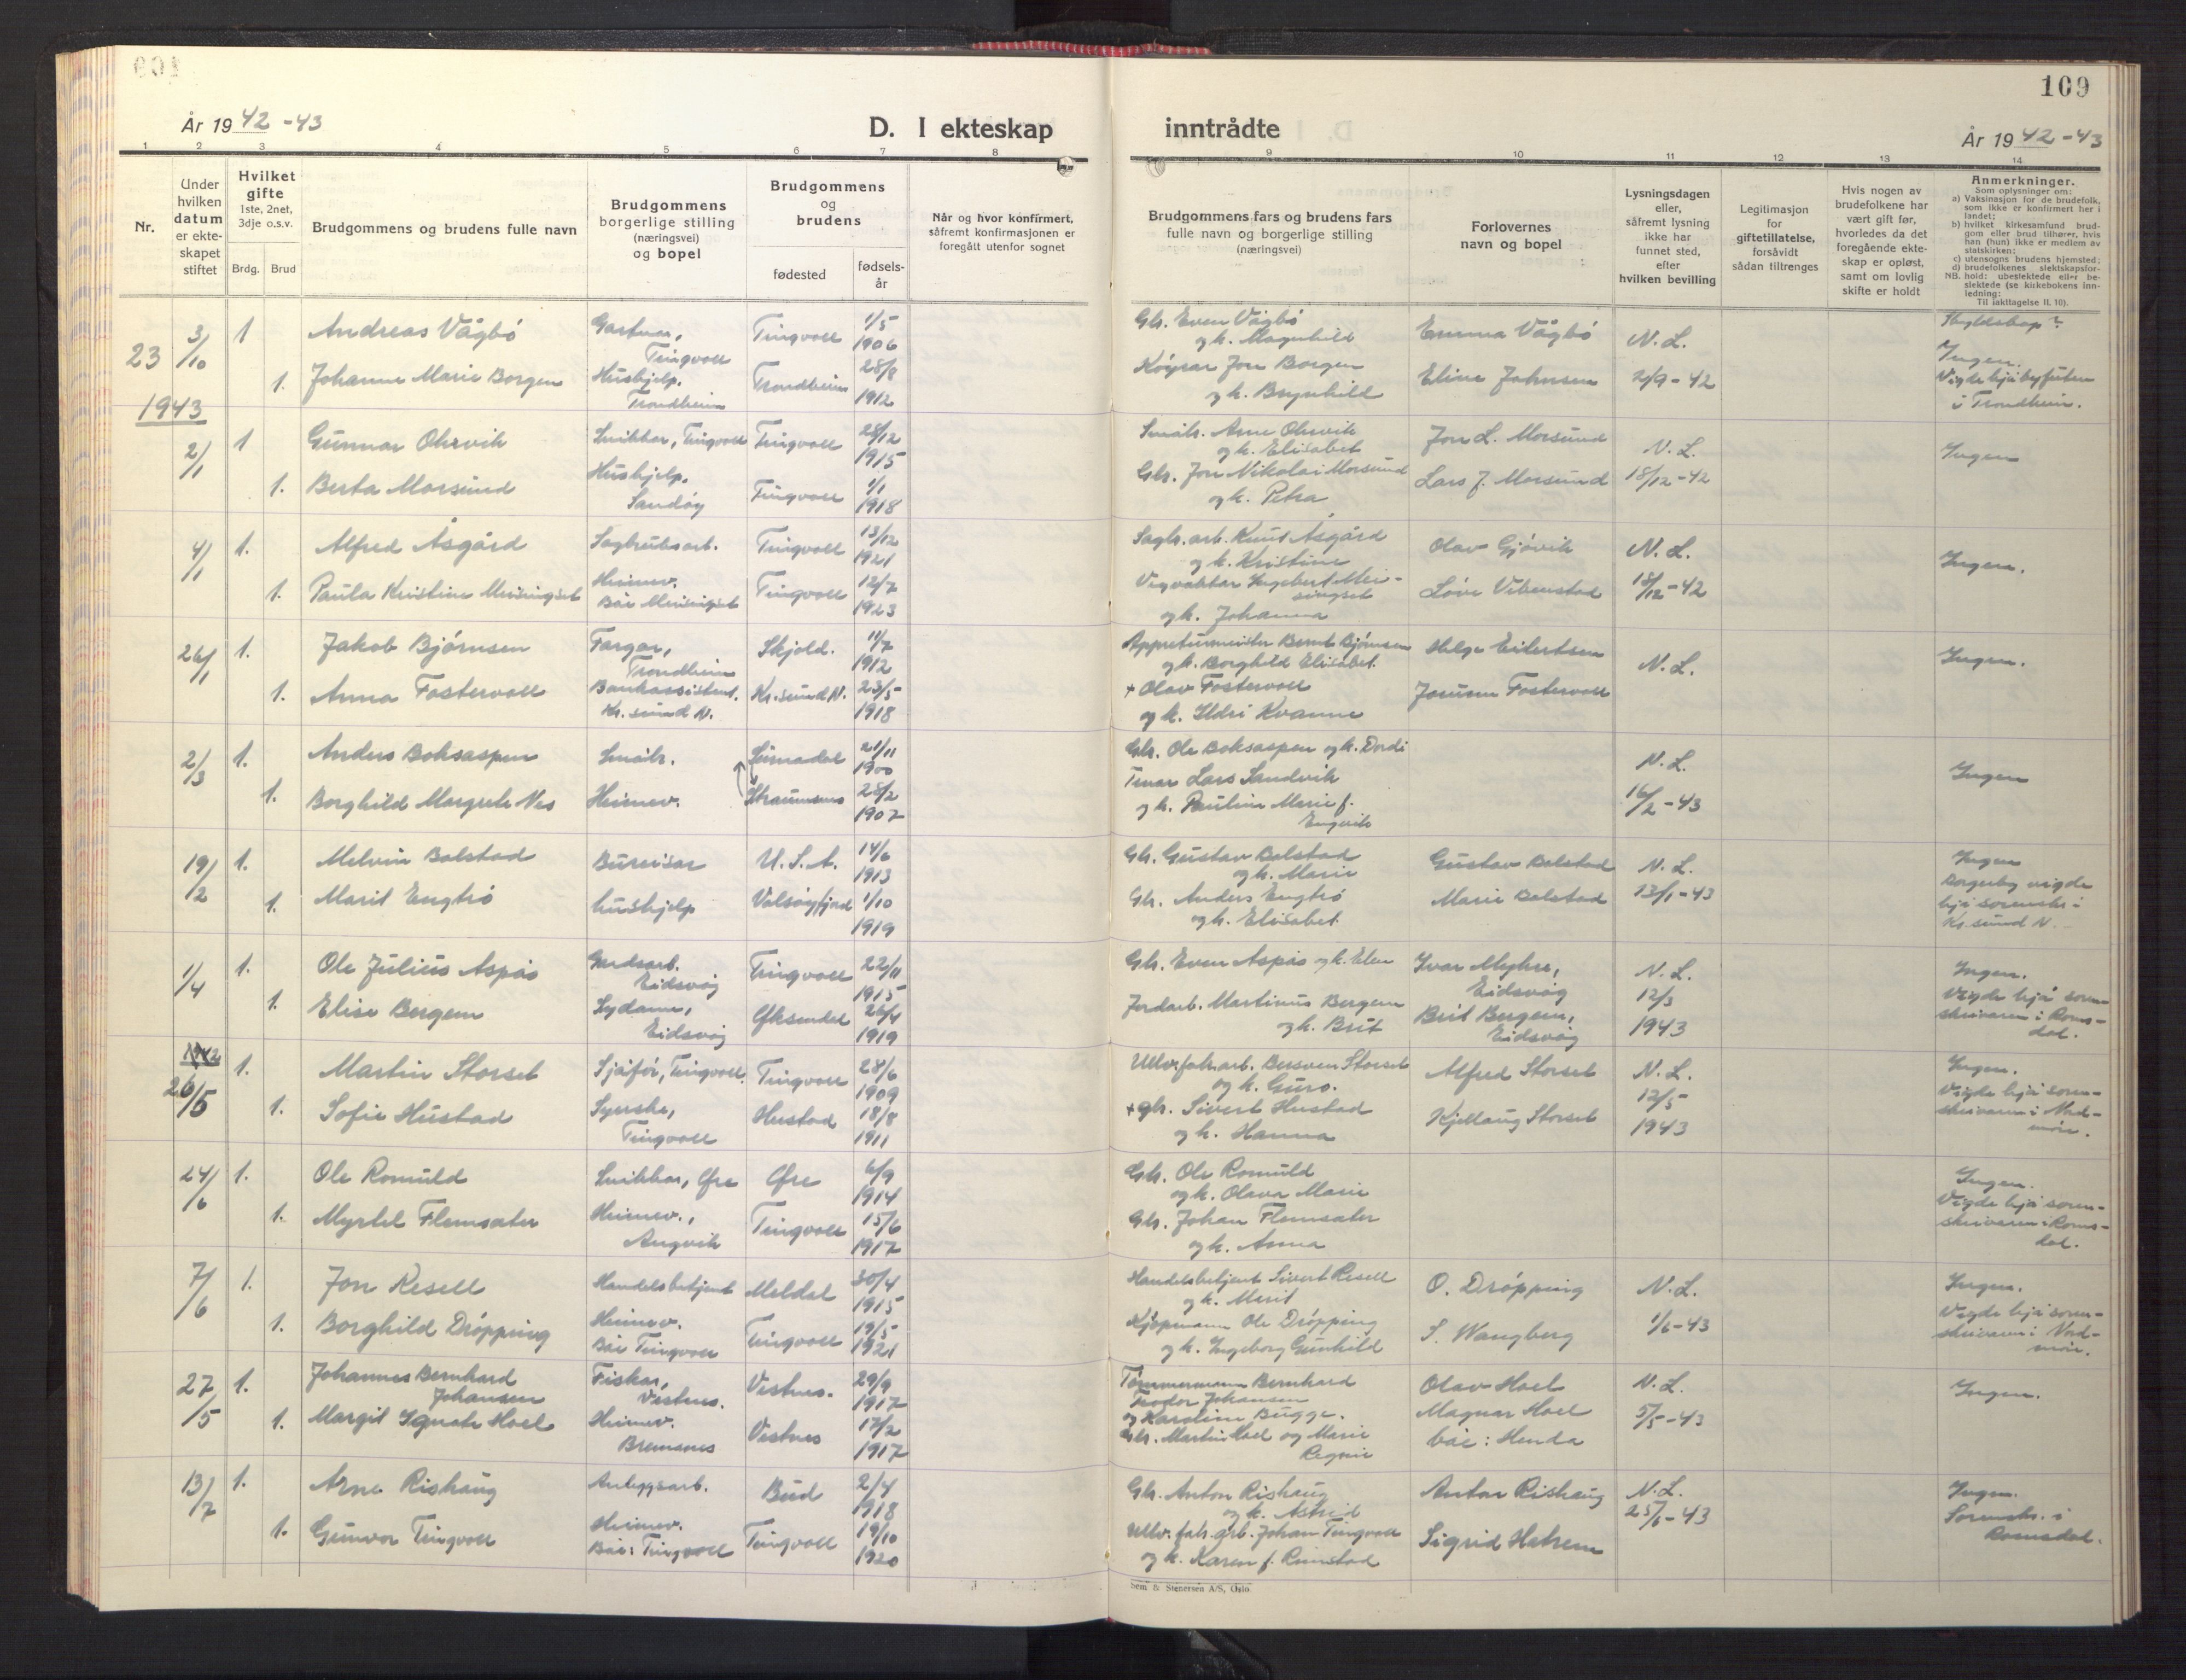 109
År 1942-43
D. I ekteskap inntrådte
År 1942-43
1 2 3 4 5 6 7 8 9 10 11 12 13 14
Nr.
Under hvilken datum er ekteskapet stiftet
Hvilket gifte
1ste, 2net, 3dje o.s.v.
Brdg. Brud
Brudgommens og brudens fulle navn
Brudgommens borgerlige stilling (næringsvei) og bopel
Brudgommens og brudens
fødested
fødselsår
Når og hvor konfirmert, såfremt konfirmasjonen er foregått utenfor sognet
Brudgommens fars og brudens fars fulle navn og borgerlige stilling (næringsvei)
Forlovernes navn og bopel
Lysningsdagen eller, såfremt lysning ikke har funnet sted, efter hvilken bevilling
Legitimasjon for giftetillatelse, forsåvidt sådan tiltrenges
Hvis nogen av brudefolkene har vært gift før, hvorledes da det foregående ekteskap er opløst, samt om lovlig skifte er holdt
Anmerkninger.
Som oplysninger om:
a) Vaksinasjon for de brudefolk, som ikke er konfirmert her i landet;
b) hvilket kirkesamfund brudgom eller brud tilhører, hvis han (hun) ikke er medlem av statskirken;
c) utensogns brudens hjemsted;
d) brudefolkenes slektskapsforhold: ubeslektede eller beslektede (se kirkebokens innledning:
NB.
Til iakttagelse II. 10).
23 3/10 1 Andreas Vågbø Gartner, Tingvoll Tingvoll 1/5 1906 Gbr. Even Vågbø og k. Magnhild Emma Vågbø N.L. Skyldskap?
1. Johanne Marie Borgen Hushjelp, Trondheim Trondheim 28/8 1912 Køyrar Jon Borgen og k. Brynhild Eline Johnsen 2/9-42 Ingen. Vigde hjå byfuten i Trondheim.
1943
2/1 1 Gunnar Ohrvik Snikkar, Tingvoll Tingvoll 28/12 1915 Småbr. Arne Ohrvik og k. Elisabet Jon L. Morsund N.L. Ingen
1. Berta Morsund Hushjelp, Sandøy Tingvoll 1/1 1918 Gbr. Jon Nikolai Morsund og k. Petra Lars J. Morsund 18/12-42
4/1 1. Alfred Åsgård Sagbruksarb. Tingvoll 13/12 1921 Sagbr.arb. Knut Åsgård og k. Kristine Olav Gjøvik N.L. Ingen.
1. Paula Kristine Meisingset Heimev. Bår Meisingset Tingvoll 12/7 1923 Vegvaktar Ingebert Meisingset og k. Johanna Love Vikenstad 18/12-42
26/1 1. Jakob Bjørnsen Fargar, Trondheim Skjold. 11/7 1912 Appreturmeister Bernt Bjørnsen og k. Borghild Elisabet. Helge Eilertsen N.L. Ingen.
1. Anna Fostervoll Bankassistent. Kr.sund N. Kr.sund N. 23/5 1918 + Olav Fostervoll og k. Ildri Kvanne Jorunn Fostervoll
2/3 1. Anders Boksaspen Småbr. Surnadal 21/11 1900 Gbr. Ole Boksaspen og k. Dordi N.L. Ingen
1. Borghild Margrete Nes Heimev. Straumsnes 28/2 1907 Lars Sandvik og k. Pauline Marie f. Engvik 16/2-43
19/2 1. Melvin Bolstad Bureisar U.S.A. 14/6 1913 Gbr. Gustav Bolstad og k. Marie Gustav Bolstad N.L. Ingen
1. Marit Engtrø hushjelp Valsøyfjord 1/10 1919 Gbr. Anders Engtrø og k. Elisabet Marie Bolstad 13/1-43 Borgarleg vigde hjå sorenskr. i Kr.sund N.
1/4 1. Ole Julius Aspås Gardsarb. Eidsvåg Tingvoll 22/11 1915 Gbr. Even Aspås og k. Elen Ivar Myhre, Eidsvåg N.L. Ingen.
1. Elise Bergem Sydame, Eidsvåg Øksendal 26/4 1919 Jordarb. Martinus Bergem og k. Brit Brit Bergem, Eidsvåg 12/3 1943 Vigde hjå sorenskrivaren i Romsdal.
1942
26/5 1. Martin Storset Sjåfør, Tingvoll. Tingvoll 28/6 1909 Ullv.fabr.arb. Bersven Storset og k. Guro. Alfred Storset N.L. Ingen.
1. Sofie Hustad Syerske, Tingvoll Hustad 18/8 1911 + gbr. Sivert Hustad og k. Hanna Kjellaug Storset 12/5 1943 Vigde hjå sorenskrivaren i Nordmøre.
24/6 1. Ole Romuld Snikkar, Øre Øre 6/9 1914 Gbr. Ole Romuld og k. Olava Marie Ingen.
1. Myrtel Flemsæter Heimev., Angvik Tingvoll 15/6 1917 Gbr. Johan Flemsæter og k. Anna Vigde hjå sorenskrivaren i Romsdal.
7/6 1. Jon Resell Handelsbetjent Meldal 30/4 1915 Handelsbetjent Sivert Resell og k. Merit O. Drøpping N.L. Ingen.
1. Borghild Drøpping Heimev. Bår Tingvoll Tingvoll 19/5 1921 Kjøpmann Ole Drøpping og k. Ingeborg Gunhild S. Wangberg 1/6-43 Vigde hjå sorenskrivaren i Nordmøre.
27/5 1. Johannes Bernhard Johansen Fiskar, Vestnes. Vestnes. 29/9 1917 Tømmermann Bernhard Teodor Johansen og Karoline Bugge. Olav Hoel N.L. Ingen.
1. Margit Hoel Heimev. Bremsnes Vestnes 17/2 1917 Gbr. Martin Hoel og Marie Magnar Hoel båe: Henda 5/5-43
13/7 1. Arne Rishaug Anleggsarb. Bud 2/4 1918 Gbr. Anton Rishaug og k. Astrid Anton Rishaug N.L. Ingen.
1. Gunvor Tingvoll Heimev. Bår: Tingvoll Tingvoll 19/10 1920 Ullv.fabr.arb. Johan Tingvoll og k. Karen f. Rimstad Sigrid Hatrem 25/6-43 Sorenskr. i Romsdal.
Sem & Stenersen A/S, Oslo